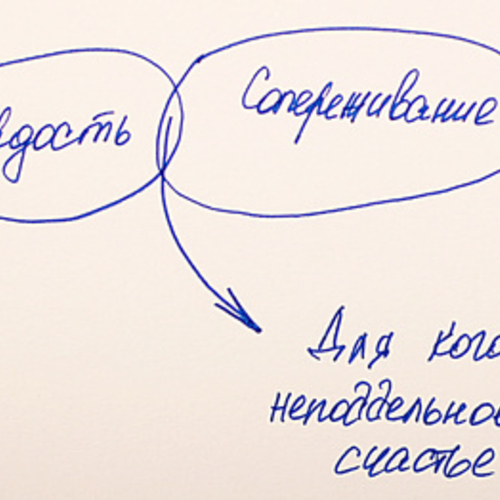 дость
Сопереживание
Для кого
неподдельное
счастье